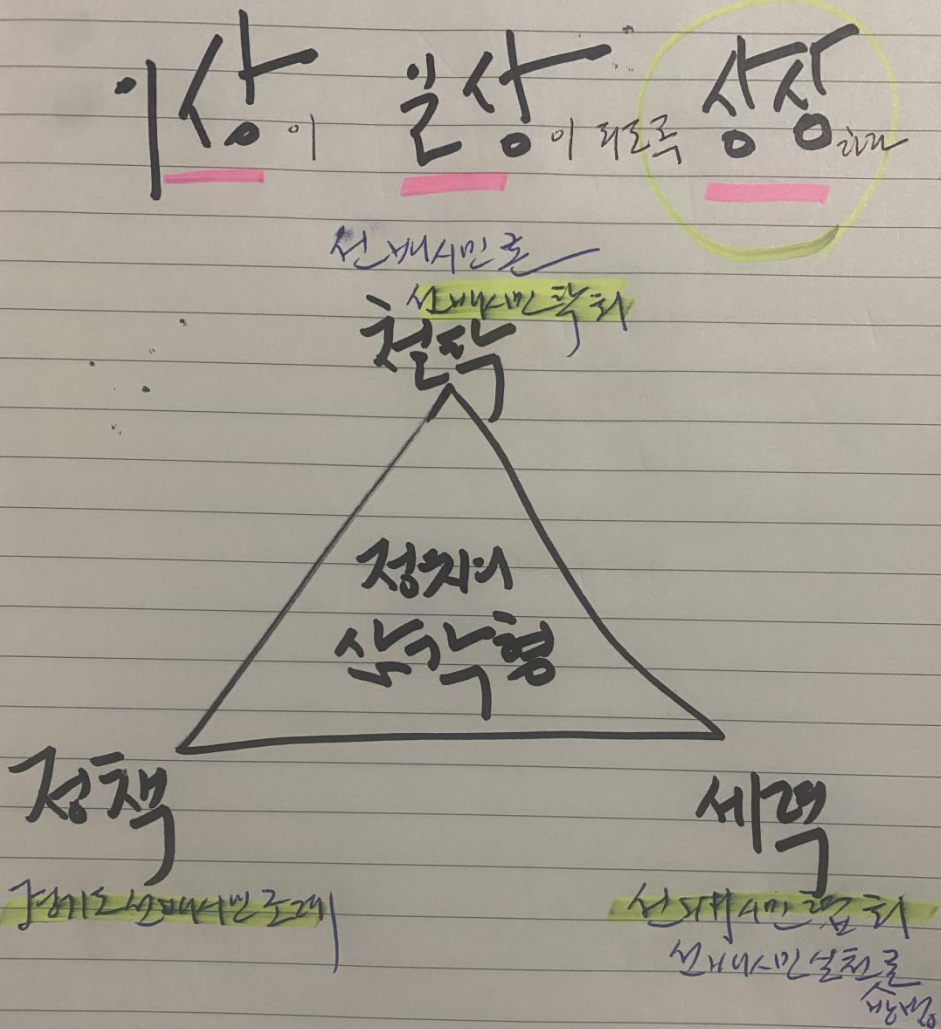 이상이 일상이 되도록 상상하라
선배시민론
선배시민학회
철학
정치의
삼각형
정책
세력
경기도선배시민조례
선배시민협회
선배시민실천론
방법